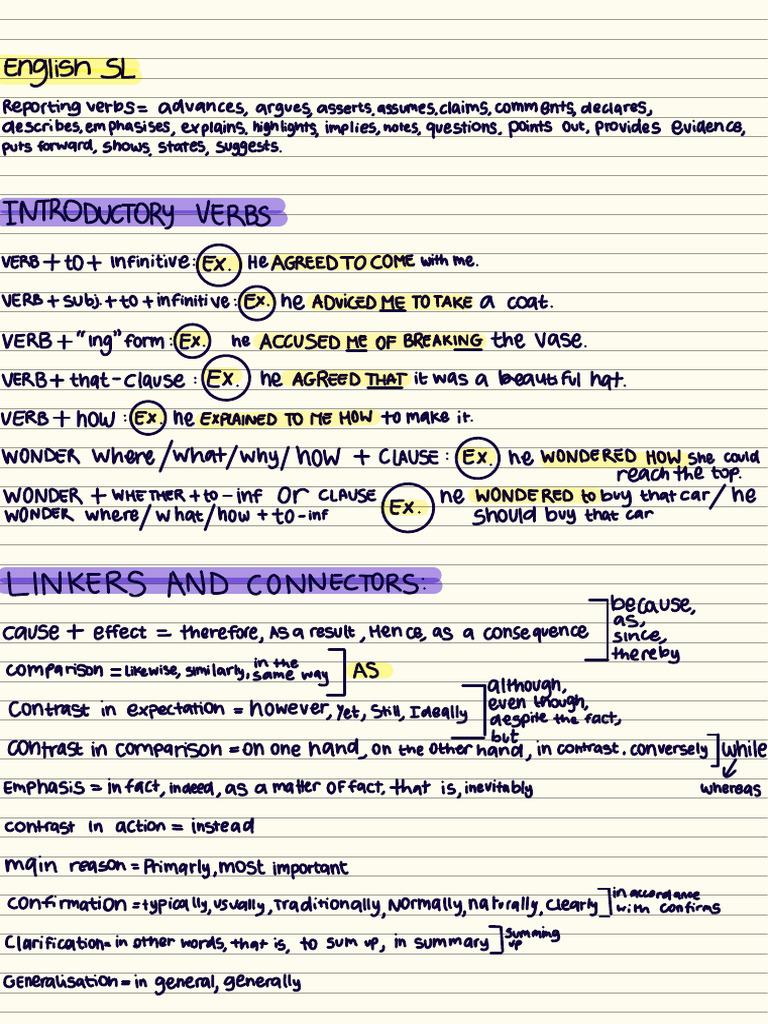 English SL
Reporting verbs = advances, argues, asserts, assumes, claims, comments, declares,
describes, emphasises, explains, highlights, implies, notes, questions, points out, provides evidence,
puts forward, shows, states, suggests.
INTRODUCTORY VERBS
VERB + to + infinitive: Ex. He AGREED TO COME with me.
VERB + subj. + to + infinitive: Ex. he ADVICED ME TO TAKE a coat.
VERB + "ing" form: Ex. he ACCUSED ME OF BREAKING the vase.
VERB + that-clause: Ex. he AGREED THAT it was a beautiful hat.
VERB + how: Ex. he EXPLAINED TO ME HOW to make it.
WONDER where/what/why/how + CLAUSE: Ex. he WONDERED HOW she could
reach the top.
WONDER + WHETHER + to-inf or CLAUSE Ex. he WONDERED to buy that car/he
WONDER where/what/how + to-inf should buy that car
LINKERS AND CONNECTORS:
cause + effect = therefore, As a result, Hence, as a consequence ] because,
as,
since,
thereby
comparison = likewise, similarly, in the
same way ] AS
Contrast in expectation = however, Yet, Still, Ideally ] although,
even though,
despite the fact,
but
contrast in comparison = on one hand, on the other hand, in contrast. conversely ] while
whereas
Emphasis = in fact, indeed, as a matter of fact, that is, inevitably
contrast in action = instead
main reason = Primarly, most important
confirmation = typically, usually, Traditionally, Normally, naturally, clearly ] in accordance
with confirms
Clarification = in other words, that is, to sum up, in summary ] summing
up
Generalisation = in general, generally